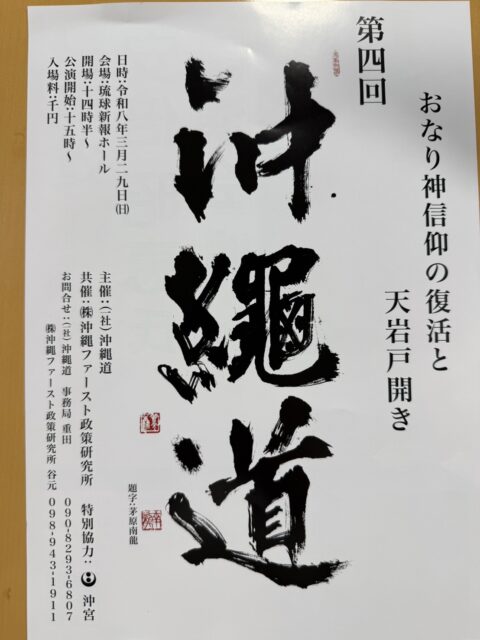 第四回
おなり神信仰の復活と
天岩戸開き
沖縄道
題字:茅原南龍
日時:令和八年三月二九日(日)
会場:琉球新報ホール
開場:十四時半〜
公演開始:十五時〜
入場料:千円
主催:(社)沖縄道
共催:㈱沖縄ファースト政策研究所 特別協力: 沖宮
お問合せ:(社)沖縄道 事務局 重田 090-8293-6807
㈱沖縄ファースト政策研究所 谷元 098-943-1911